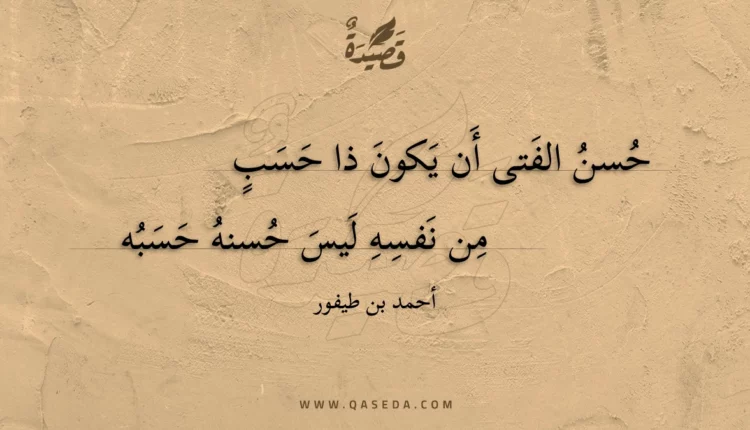 قَصِيدَةٌ
حُسنُ الفَتى أَن يَكونَ ذا حَسَبٍ
مِن نَفسِهِ لَيسَ حُسنهُ حَسَبُه
أحمد بن طيفور
WWW.QASEDA.COM